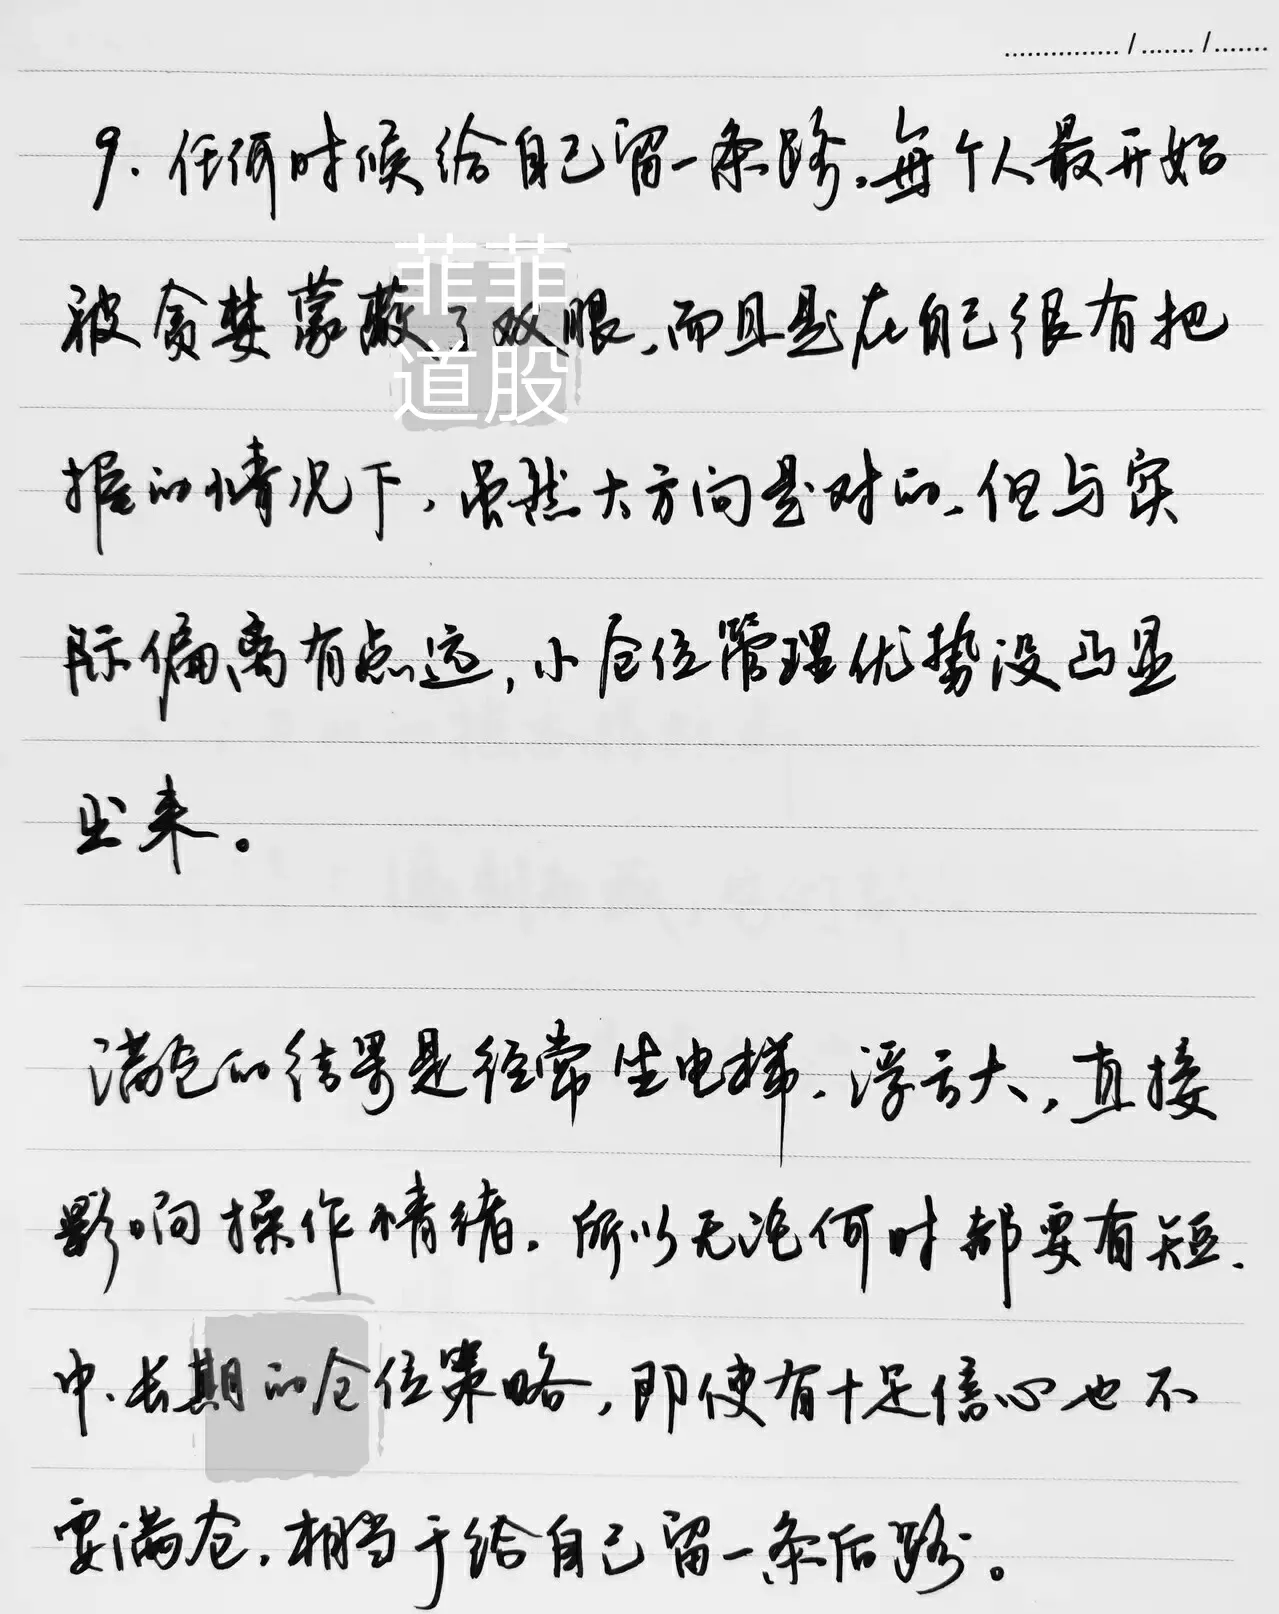 9. 任何时候给自己留一条路,每个人最开始
被贪婪蒙蔽了双眼,而且是在自己很有把
握的情况下,虽然大方向是对的,但与实
际偏离有点远,小仓位管理优势没凸显
出来。
满仓的结果是经常坐电梯,浮亏大,直接
影响操作情绪,所以无论何时都要有短、
中、长期的仓位策略,即使有十足信心也不
要满仓,相当于给自己留一条后路。
菲菲
道股